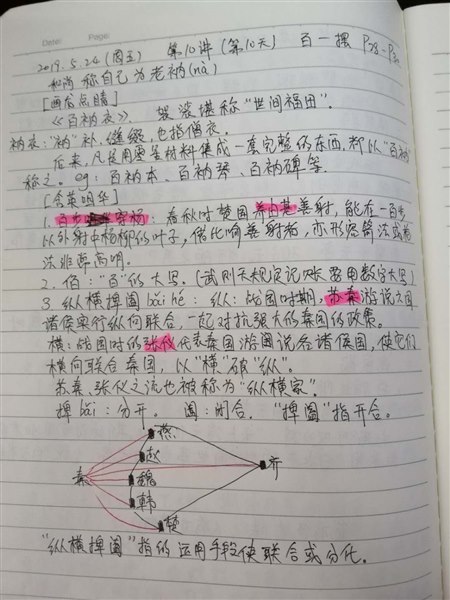 Date: Page:
2019.5.24(周五) 第10讲(第10天) 百一摆 P28-P30
和尚称自己为老衲(nà)
[画龙点睛]
《百衲衣》. 袈裟堪称“世间福田”.
衲衣:“衲”补,缝缀,也指僧衣.
后来,凡是用零星材料集成一套完整的东西,都以“百衲”
称之. eg:百衲本、百衲琴、百衲碑等.
[含英咀华]
1. 百步穿杨:春秋时楚国养由基善射,能在一百步
以外射中杨柳的叶子,借此喻善射者,亦形容箭法或枪
法非常高明.
2. 佰:“百”的大写.(武则天规定记账要用数字大写)
3. 纵横捭阖bǎi hé:纵:战国时期,苏秦游说六国
诸侯实行纵向联合,一起对抗强大的秦国的政策.
横:战国时的张仪代表秦国游说各诸侯国,使它们
横向联合秦国,以“横”破“纵”.
苏秦、张仪之流也被称为“纵横家”.
捭bǎi:分开. 阖:闭合. “捭阖”指开合.
燕
赵
秦 魏 齐
韩
楚
“纵横捭阖”指的运用手段使联合或分化.